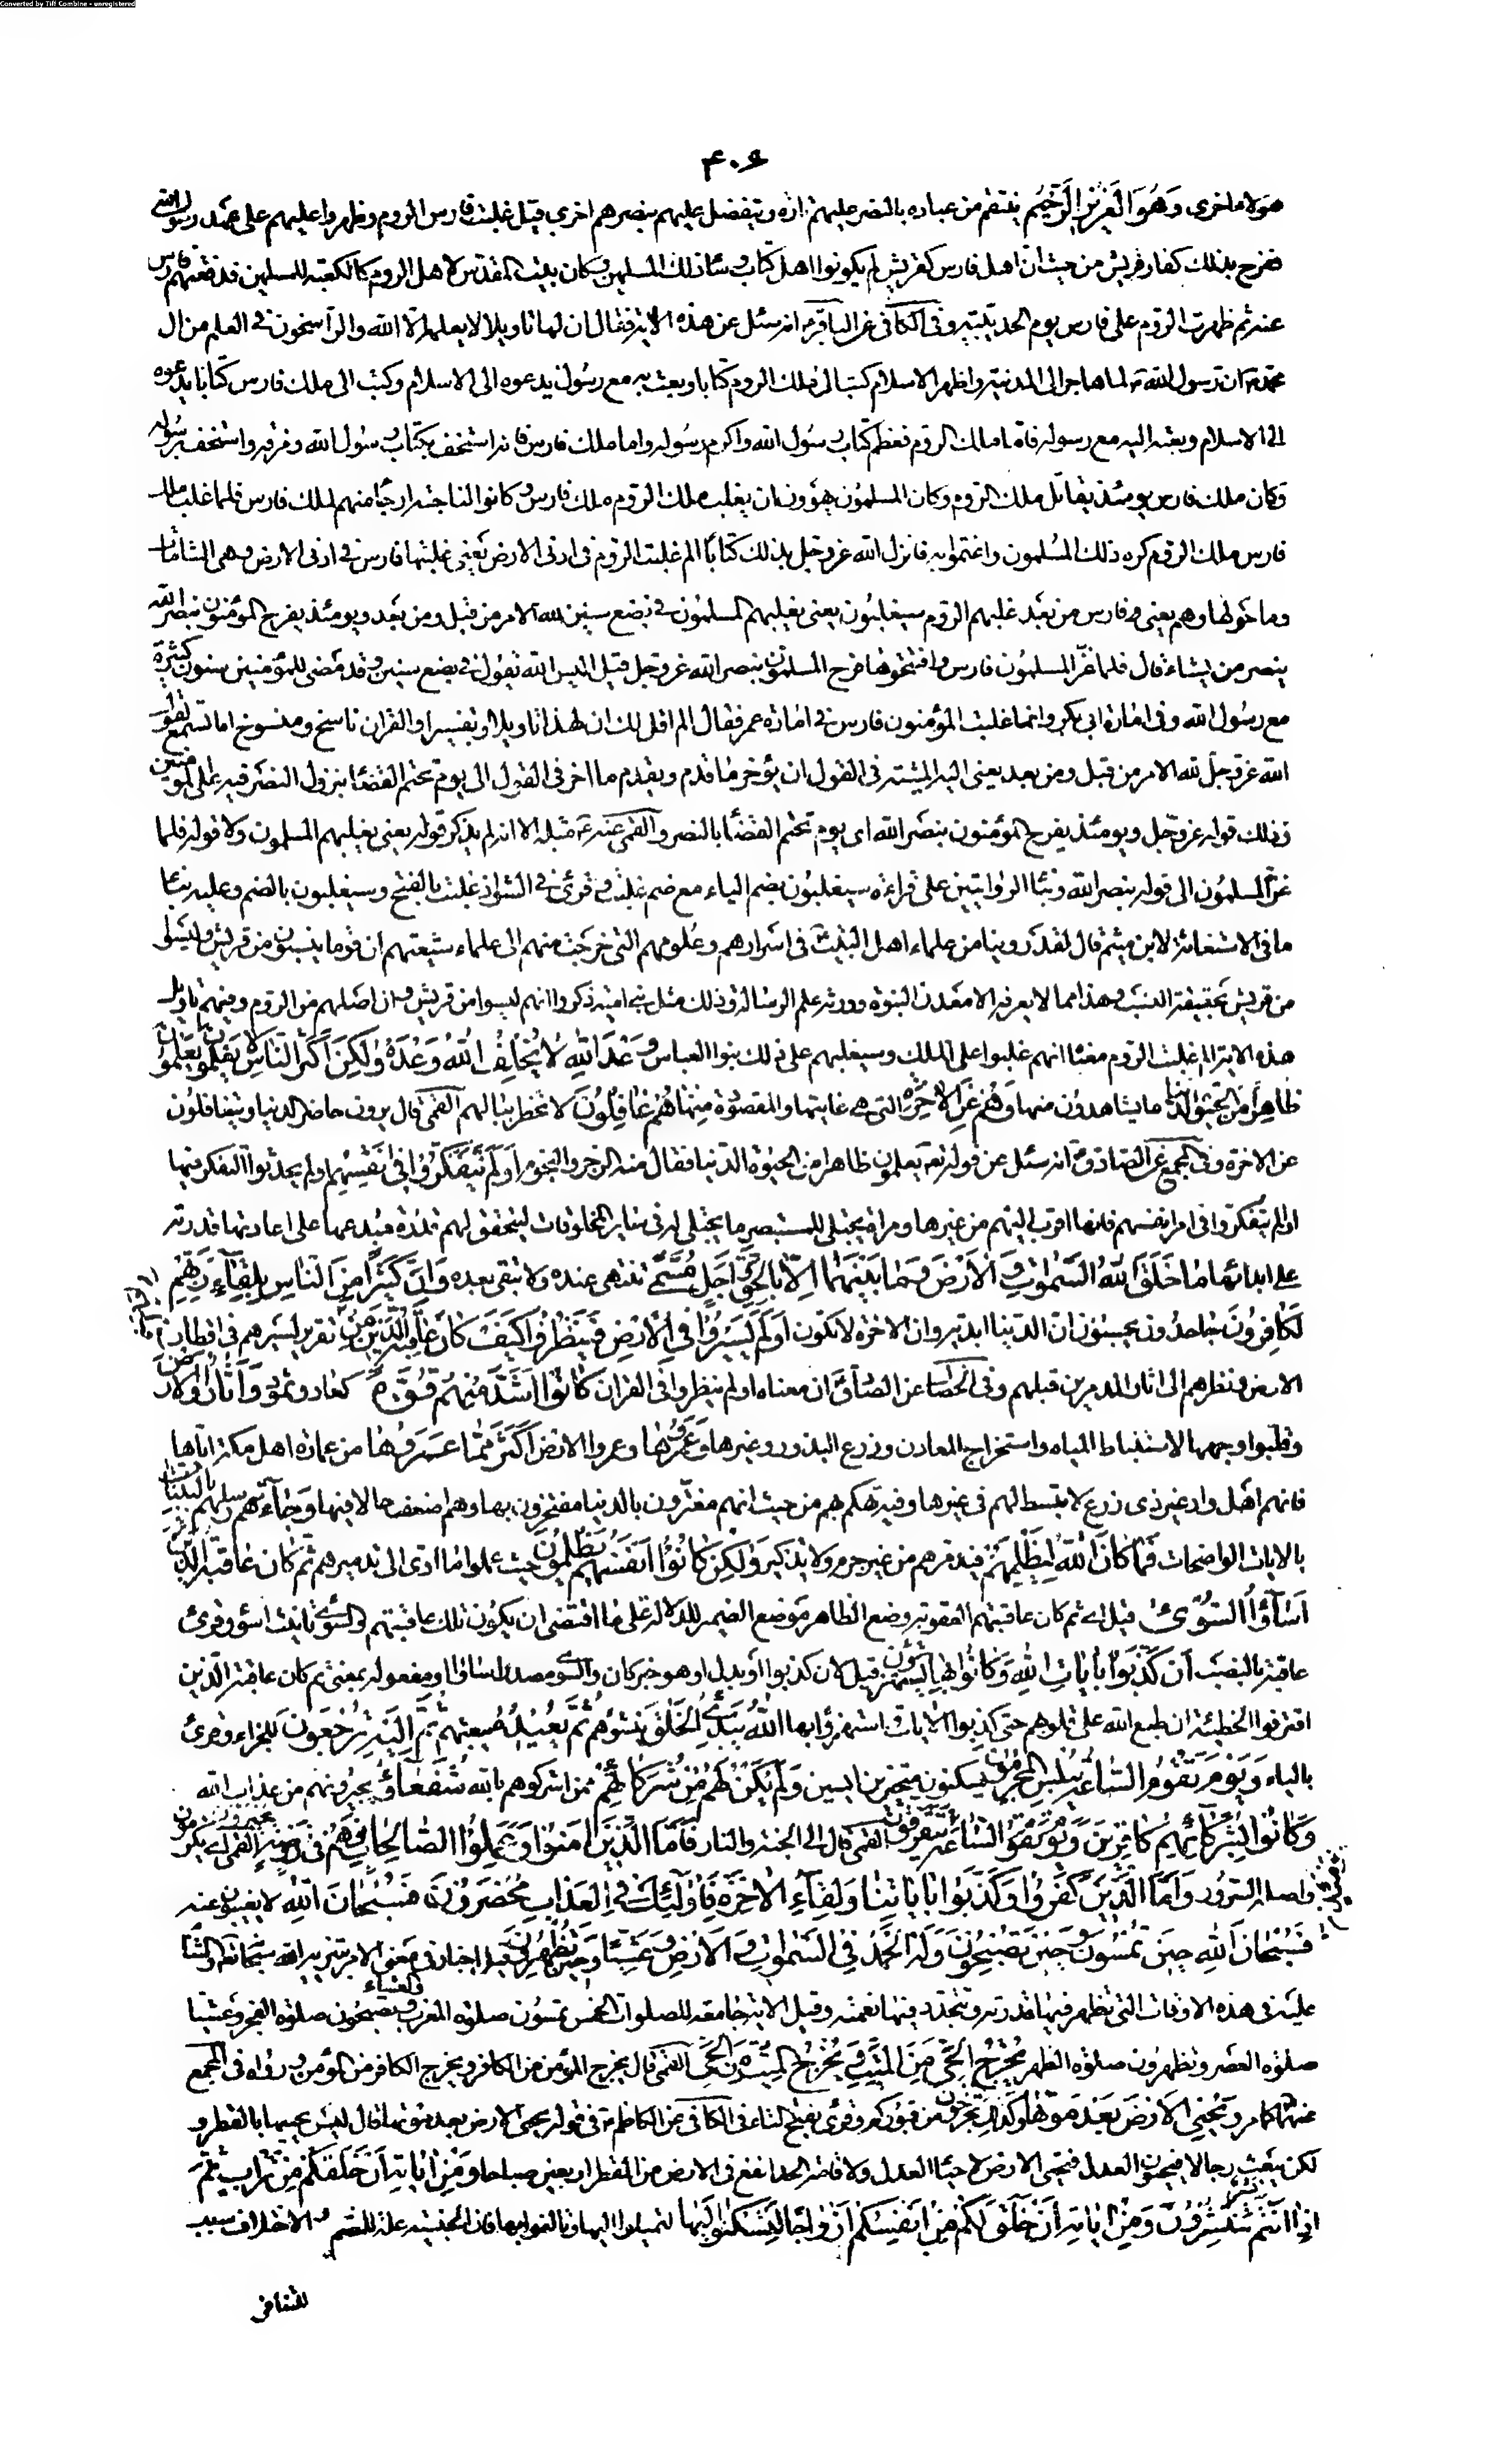 Converted by Tiff Combine - unregistered
۴۰۶
هؤلاء اخرى وَهُوَ الْعَزيزُ الرَّحيمُ ينتقم من عباده بالنصر عليهم تارة ويتفضل عليهم بنصرهم اخرى قيل غلبت فارس الروم وظهروا عليهم على عهد رسول الله
ففرح بذلك كفار قريش من حيث ان اهل فارس كقريش لم يكونوا اهل كتاب وساء ذلك المسلمين وكان بيت المقدس لاهل الروم كالكعبة للمسلمين فدفعتهم فارس
عنه ثم ظهرت الروم على فارس يوم الحديبية وفى الكافى عن الباقر انه سئل عن هذه الاية فقال ان لها تاويلا لا يعلمه الا الله والراسخون فى العلم من ال
محمد ان رسول الله لما هاجر الى المدينة واظهر الاسلام كتب الى ملك الروم كتابا وبعث به مع رسول يدعوه الى الاسلام وكتب الى ملك فارس كتابا يدعوه
الى الاسلام وبعثه اليه مع رسوله فاما ملك الروم فعظم كتاب رسول الله واكرم رسوله واما ملك فارس فانه استخف بكتاب رسول الله ومزقه واستخف برسوله
وكان ملك فارس يومئذ يقاتل ملك الروم وكان المسلمون يهوون ان يغلب ملك الروم ملك فارس وكانوا لناحيته ارجا منهم لملك فارس فلما غلب ملك
فارس ملك الروم كره ذلك المسلمون واغتموا به فانزل الله عز وجل بذلك كتابا الم غلبت الروم فى ادنى الارض يعنى غلبتها فارس فى ادنى الارض وهى الشامات
وما حولها وهم يعنى وفارس من بعد غلبهم الروم سيغلبون يعنى يغلبهم المسلمون فى بضع سنين لله الامر من قبل ومن بعد ويومئذ يفرح المؤمنون بنصر الله
ينصر من يشاء قال فلما غزا المسلمون فارس وافتتحوها فرح المسلمون بنصر الله عز وجل قيل اليس الله يقول فى بضع سنين وقد مضى للمؤمنين سنون كثيرة
مع رسول الله وفى امارة ابى بكر وانما غلبت المؤمنون فارس فى امارة عمر فقال الم اقل لك ان لهذا تاويلا وتفسيرا والقران ناسخ ومنسوخ اما تسمع لقول
الله عز وجل لله الامر من قبل ومن بعد يعنى اليه المشية فى القول ان يؤخر ما قدم ويقدم ما اخر فى القول الى يوم يحتم القضاء بنزول النصر فيه على المؤمنين
وذلك قوله عز وجل ويومئذ يفرح المؤمنون بنصر الله اى يوم يحتم القضاء بالنصر والقمى عنه مثله الا انه لم يذكر قوله يعنى يغلبهم المسلمون ولا قوله فلما
غزا المسلمون الى قوله بنصر الله وبناء الروايتين على قراءة سيغلبون بضم الياء مع ضم غلبت وقرئ فى الشواذ غلبت بالفتح وسيغلبون بالضم وعليه بناء
ما فى الاستغاثة لابن ميثم قال لقد روينا من علماء اهل البيت فى اسرارهم وعلومهم التى خرجت منهم الى علماء شيعتهم ان قوما ينسبون من قريش وليسوا
من قريش بحقيقة النسب وهذا مما لا يعرفه الا معدن النبوة وورثة علم الرسالة وذلك مثل بنى امية ذكروا انهم ليسوا من قريش وان اصلهم من الروم وفيهم تاويل
هذه الاية الم غلبت الروم معناه انهم غلبوا على الملك وسيغلبهم على ذلك بنوا العباس وَعْدَ اللهِ لا يُخْلِفُ اللهُ وَعْدَهُ وَلكِنَّ اَكْثَرَ النّاسِ لا يَعْلَمُونَ يَعْلَمُونَ
ظاهِراً مِنَ الْحَيوةِ الدُّنْيا ما يشاهدون منها وَهُمْ عَنِ الاخِرَةِ التى هى غايتها والمقصودة منها هُمْ غافِلُونَ لا تخطر ببالهم القمى قال يرون حاضر الدنيا ويتغافلون
عن الاخرة وفى المجمع عن الصادق انه سئل عن قوله تع يعلمون ظاهرا من الحيوة الدنيا فقال منه الزجر والنجوم اَوَلَمْ يَتَفَكَّرُوا فى اَنْفُسِهِمْ اولم يحدثوا التفكر فيها
اولم يتفكروا فى امر انفسهم فانها اقرب اليهم من غيرها ومرءاة يجتلى للمستبصر ما يجتلى له فى ساير المخلوقات ليتحقق لهم قدرة مبدعها على اعادتها قدرته
على ابدائها ما خَلَقَ اللهُ السَّمواتِ وَالاَرْضَ وَما بَيْنَهُما اِلاّ بِالْحَقِّ وَاَجَلٍ مُسَمًّى تنتهى عنده ولا تبقى بعده وَاِنَّ كَثيراً مِنَ النّاسِ بِلِقاءِ رَبِّهِمْ
لَكافِرُونَ جاحدون يحسبون ان الدنيا ابدية وان الاخرة لا تكون اَوَلَمْ يَسيرُوا فِى الاَرْضِ فَيَنْظُرُوا كَيْفَ كانَ عاقِبَةُ الَّذينَ مِنْ تقرير لسيرهم فى اقطار
الارض ونظرهم الى اثار المدمرين قبلهم وفى الخصال عن الصادق ان معناه اولم ينظروا فى القران كانُوا اَشَدَّ مِنْهُمْ قُوَّةً كعاد وثمود وَاَثارُوا الاَرْضَ
وقلبوا وجهها لاستنباط المياه واستخراج المعادن وزرع البذور وغيرها وَعَمَرُوها وعمروا الارض اَكْثَرَ مِمّا عَمَرُوها من عمارة اهل مكة اياها
فانهم اهل واد غير ذى زرع لا تبسط لهم فى غيرها وفيه تهكم بهم من حيث انهم مغترون بالدنيا مفتخرون بها وهم اضعف حالا فيها وَجاءَتْهُمْ رُسُلُهُمْ بِالْبَيِّناتِ
بالايات الواضحات فَما كانَ اللهُ لِيَظْلِمَهُمْ فيدمرهم من غير جرم ولا تذكير وَلكِنْ كانُوا اَنْفُسَهُمْ يَظْلِمُونَ حيث عملوا ما ادى الى تدميرهم ثُمَّ كانَ عاقِبَةَ الَّذينَ
اَساؤُا السُّوئ قيل اى ثم كان عاقبتهم العقوبة وضع الظاهر موضع الضمير للدلالة على ما اقتضى ان يكون تلك عاقبتهم والسوئ تانيث اسوء وقرئ
عاقبة بالنصب اَنْ كَذَّبُوا بِاياتِ اللهِ وَكانُوا بِها يَسْتَهْزِؤُنَ قيل لان كذبوا او بدل او هو خبر كان والسوئ مصدر اساؤا او مفعوله بمعنى ثم كان عاقبة الذين
اقترفوا الخطيئة ان طبع الله على قلوبهم حتى كذبوا الايات واستهزؤا بها اَللهُ يَبْدَؤُ الْخَلْقَ ينشئهم ثُمَّ يُعيدُهُ يبعثهم ثُمَّ اِلَيْهِ تُرْجَعُونَ للجزاء وقرئ
بالياء وَيَوْمَ تَقُومُ السّاعَةُ يُبْلِسُ الْمُجْرِمُونَ يسكتون متحيرين ايسين وَلَمْ يَكُنْ لَهُمْ مِنْ شُرَكائِهِمْ ممن اشركوهم بالله شُفَعاءُ يجيرونهم من عذاب الله
وَكانُوا بِشُرَكائِهِمْ كافِرينَ وَيَوْمَ تَقُومُ السّاعَةُ يَوْمَئِذٍ يَتَفَرَّقُونَ القمى قال الى الجنة والنار فَاَمَّا الَّذينَ امَنُوا وَعَمِلُوا الصّالِحاتِ فَهُمْ فى رَوْضَةٍ يُحْبَرُونَ القمى اى يكرمون
واصله السرور وَاَمَّا الَّذينَ كَفَرُوا وَكَذَّبُوا بِاياتِنا وَلِقاءِ الاخِرَةِ فَاُولئِكَ فِى الْعَذابِ مُحْضَرُونَ فَسُبْحانَ اللهِ لا يغيبون عنه
فَسُبْحانَ اللهِ حينَ تُمْسُونَ وَحينَ تُصْبِحُونَ وَلَهُ الْحَمْدُ فِى السَّمواتِ وَالاَرْضِ وَعَشِيّاً وَحينَ تُظْهِرُونَ قيل اخبار فى معنى الامر بتنزيه الله سبحانه والثناء
عليه فى هذه الاوقات التى تظهر فيها قدرته وتتجدد فيها نعمته وقيل الاية جامعة للصلوات الخمس تمسون صلوة المغرب والعشاء وتصبحون صلوة الفجر وعشيا
صلوة العصر وتظهرون صلوة الظهر يُخْرِجُ الْحَىَّ مِنَ الْمَيِّتِ وَيُخْرِجُ الْمَيِّتَ مِنَ الْحَىِّ القمى قال يخرج المؤمن من الكافر ويخرج الكافر من المؤمن ورواه فى المجمع
عنهما كما مر وَيُحْيِى الاَرْضَ بَعْدَ مَوْتِها وَكَذلِكَ تُخْرَجُونَ من قبوركم وقرئ بفتح التاء فى الكافى عن الكاظم فى قوله يحيى الارض بعد موتها قال ليس يحييها بالقطر و
لكن يبعث رجالا فيحيون العدل فتحيى الارض لاحياء العدل ولاقامة الحد انفع فى الارض من القطر اربعين صباحا وَمِنْ اياتِهِ اَنْ خَلَقَكُمْ مِنْ تُرابٍ ثُمَّ
اِذا اَنْتُمْ بَشَرٌ تَنْتَشِرُونَ وَمِنْ اياتِهِ اَنْ خَلَقَ لَكُمْ مِنْ اَنْفُسِكُمْ اَزْواجاً لِتَسْكُنُوا اِلَيْها لتميلوا اليها وتالفوا بها فان الجنسية علة للضم والاختلاف سبب
للتنافر